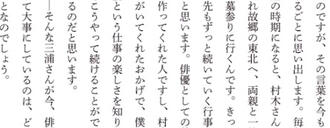 のですが、その言葉を今も
るごとに思い出します。毎
の時期になると、村木さん
れ故郷の東北へ、両親と一
墓参りに行くんです。きっ
先もずっと続いていく行事
と思います。俳優としての
作ってくれた人ですし、村
がいてくれたおかげで、僕
という仕事の楽しさを知り
こうやって続けることがで
るのだと思います。
―そんな三浦さんが今、俳
て大事にしているのは、ど
となのでしょう。